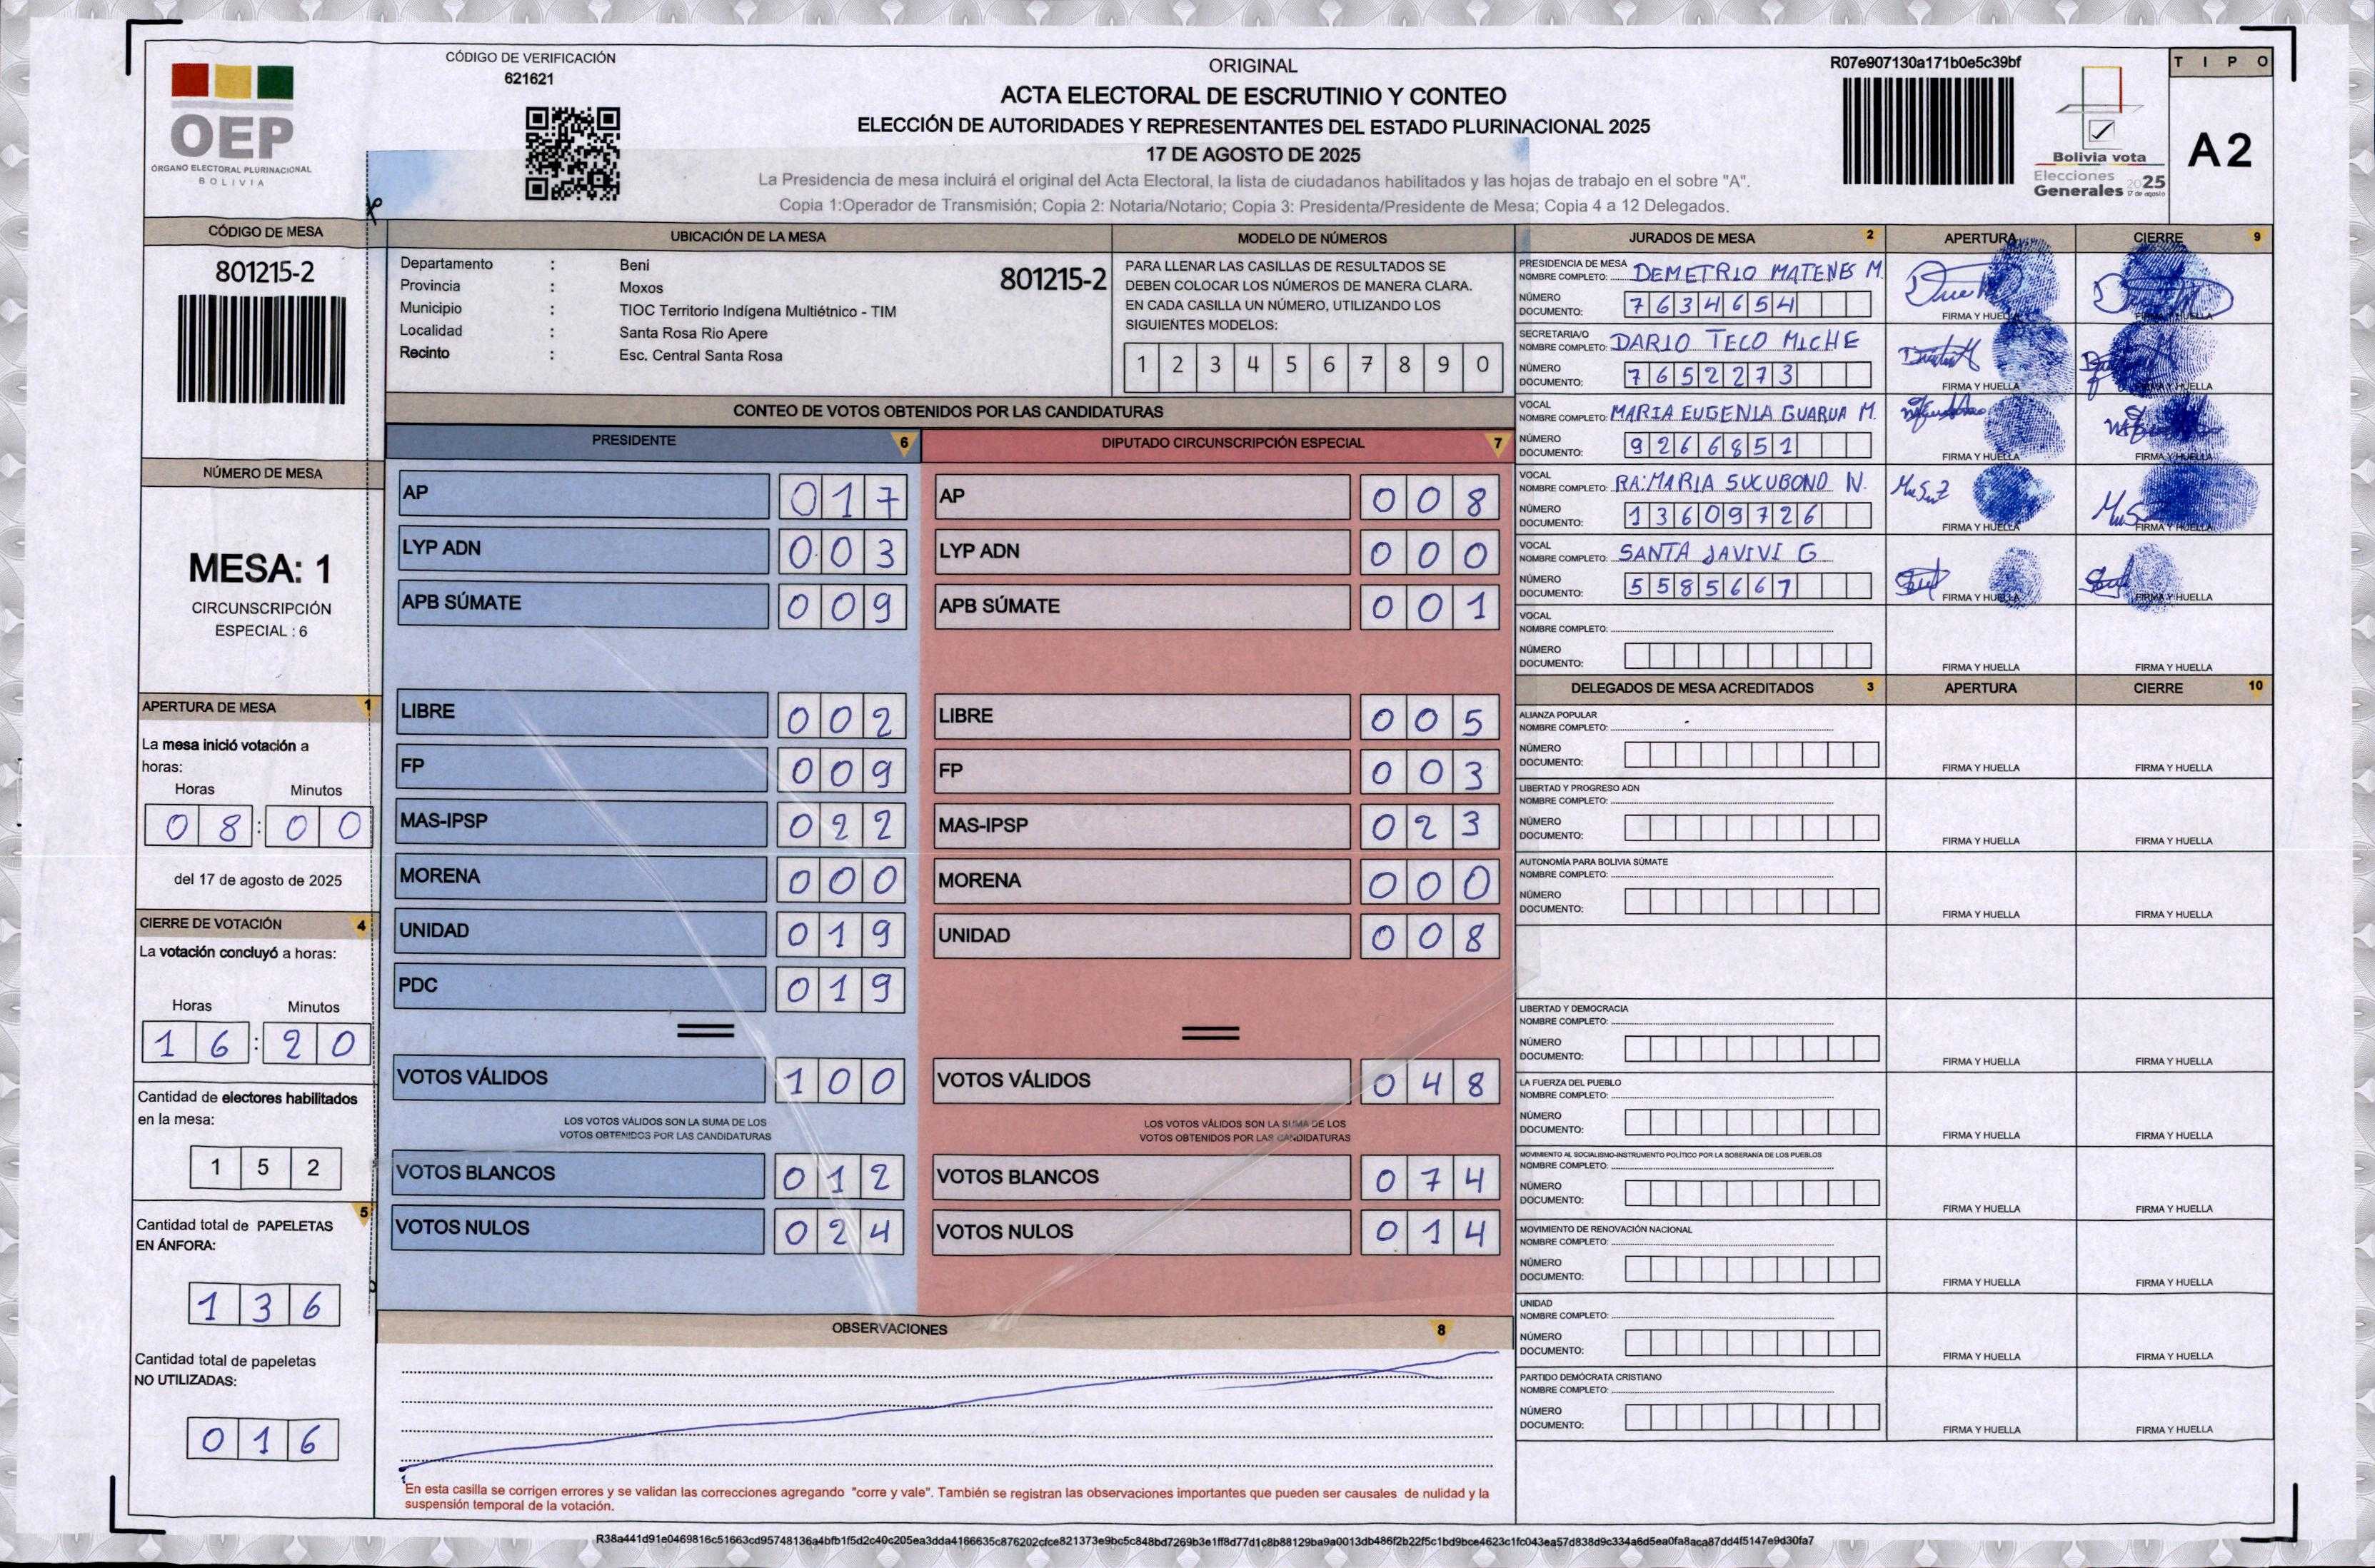 CÓDIGO DE VERIFICACIÓN
621621
OEP
ÓRGANO ELECTORAL PLURINACIONAL
BOLIVIA
ORIGINAL
ACTA ELECTORAL DE ESCRUTINIO Y CONTEO
ELECCIÓN DE AUTORIDADES Y REPRESENTANTES DEL ESTADO PLURINACIONAL 2025
17 DE AGOSTO DE 2025
La Presidencia de mesa incluirá el original del Acta Electoral, la lista de ciudadanos habilitados y las hojas de trabajo en el sobre "A".
Copia 1:Operador de Transmisión; Copia 2: Notaria/Notario; Copia 3: Presidenta/Presidente de Mesa; Copia 4 a 12 Delegados.
R07e907130a171b0e5c39bf
Bolivia vota
Elecciones
Generales 2025
17 de agosto
TIPO
A2
CÓDIGO DE MESA
801215-2
NÚMERO DE MESA
MESA: 1
CIRCUNSCRIPCIÓN
ESPECIAL : 6
APERTURA DE MESA 1
La mesa inició votación a
horas:
Horas Minutos
08:00
del 17 de agosto de 2025
CIERRE DE VOTACIÓN 4
La votación concluyó a horas:
Horas Minutos
16:20
Cantidad de electores habilitados
en la mesa:
152
5
Cantidad total de PAPELETAS
EN ÁNFORA:
136
Cantidad total de papeletas
NO UTILIZADAS:
016
UBICACIÓN DE LA MESA
Departamento : Beni
801215-2
Provincia : Moxos
Municipio : TIOC Territorio Indígena Multiétnico - TIM
Localidad : Santa Rosa Rio Apere
Recinto : Esc. Central Santa Rosa
MODELO DE NÚMEROS
PARA LLENAR LAS CASILLAS DE RESULTADOS SE
DEBEN COLOCAR LOS NÚMEROS DE MANERA CLARA.
EN CADA CASILLA UN NÚMERO, UTILIZANDO LOS
SIGUIENTES MODELOS:
1 2 3 4 5 6 7 8 9 0
CONTEO DE VOTOS OBTENIDOS POR LAS CANDIDATURAS
PRESIDENTE 6
AP 017
LYP ADN 003
APB SÚMATE 009
LIBRE 002
FP 009
MAS-IPSP 022
MORENA 000
UNIDAD 019
PDC 019
VOTOS VÁLIDOS 100
LOS VOTOS VÁLIDOS SON LA SUMA DE LOS
VOTOS OBTENIDOS POR LAS CANDIDATURAS
VOTOS BLANCOS 012
VOTOS NULOS 024
DIPUTADO CIRCUNSCRIPCIÓN ESPECIAL 7
AP 008
LYP ADN 000
APB SÚMATE 001
LIBRE 005
FP 003
MAS-IPSP 023
MORENA 000
UNIDAD 008
VOTOS VÁLIDOS 048
LOS VOTOS VÁLIDOS SON LA SUMA DE LOS
VOTOS OBTENIDOS POR LAS CANDIDATURAS
VOTOS BLANCOS 074
VOTOS NULOS 014
OBSERVACIONES 8
En esta casilla se corrigen errores y se validan las correcciones agregando "corre y vale". También se registran las observaciones importantes que pueden ser causales de nulidad y la
suspensión temporal de la votación.
JURADOS DE MESA 2 APERTURA CIERRE 9
PRESIDENCIA DE MESA
NOMBRE COMPLETO: DEMETRIO MATENE M.
NÚMERO
DOCUMENTO: 7634654
FIRMA Y HUELLA FIRMA Y HUELLA
SECRETARIA/O
NOMBRE COMPLETO: DARIO TECO MICHE
NÚMERO
DOCUMENTO: 7652273
FIRMA Y HUELLA FIRMA Y HUELLA
VOCAL
NOMBRE COMPLETO: MARIA EUGENIA GUARUA M.
NÚMERO
DOCUMENTO: 9266851
FIRMA Y HUELLA FIRMA Y HUELLA
VOCAL
NOMBRE COMPLETO: RA:MARIA SUCUBONO N.
NÚMERO
DOCUMENTO: 13609726
FIRMA Y HUELLA FIRMA Y HUELLA
VOCAL
NOMBRE COMPLETO: SANTA JAVIVI G
NÚMERO
DOCUMENTO: 5585667
FIRMA Y HUELLA FIRMA Y HUELLA
VOCAL
NOMBRE COMPLETO:
NÚMERO
DOCUMENTO:
FIRMA Y HUELLA FIRMA Y HUELLA
DELEGADOS DE MESA ACREDITADOS 3 APERTURA CIERRE 10
ALIANZA POPULAR
NOMBRE COMPLETO:
NÚMERO
DOCUMENTO:
FIRMA Y HUELLA FIRMA Y HUELLA
LIBERTAD Y PROGRESO ADN
NOMBRE COMPLETO:
NÚMERO
DOCUMENTO:
FIRMA Y HUELLA FIRMA Y HUELLA
AUTONOMÍA PARA BOLIVIA SÚMATE
NOMBRE COMPLETO:
NÚMERO
DOCUMENTO:
FIRMA Y HUELLA FIRMA Y HUELLA
LIBERTAD Y DEMOCRACIA
NOMBRE COMPLETO:
NÚMERO
DOCUMENTO:
FIRMA Y HUELLA FIRMA Y HUELLA
LA FUERZA DEL PUEBLO
NOMBRE COMPLETO:
NÚMERO
DOCUMENTO:
FIRMA Y HUELLA FIRMA Y HUELLA
MOVIMIENTO AL SOCIALISMO-INSTRUMENTO POLÍTICO POR LA SOBERANÍA DE LOS PUEBLOS
NOMBRE COMPLETO:
NÚMERO
DOCUMENTO:
FIRMA Y HUELLA FIRMA Y HUELLA
MOVIMIENTO DE RENOVACIÓN NACIONAL
NOMBRE COMPLETO:
NÚMERO
DOCUMENTO:
FIRMA Y HUELLA FIRMA Y HUELLA
UNIDAD
NOMBRE COMPLETO:
NÚMERO
DOCUMENTO:
FIRMA Y HUELLA FIRMA Y HUELLA
PARTIDO DEMÓCRATA CRISTIANO
NOMBRE COMPLETO:
NÚMERO
DOCUMENTO:
FIRMA Y HUELLA FIRMA Y HUELLA